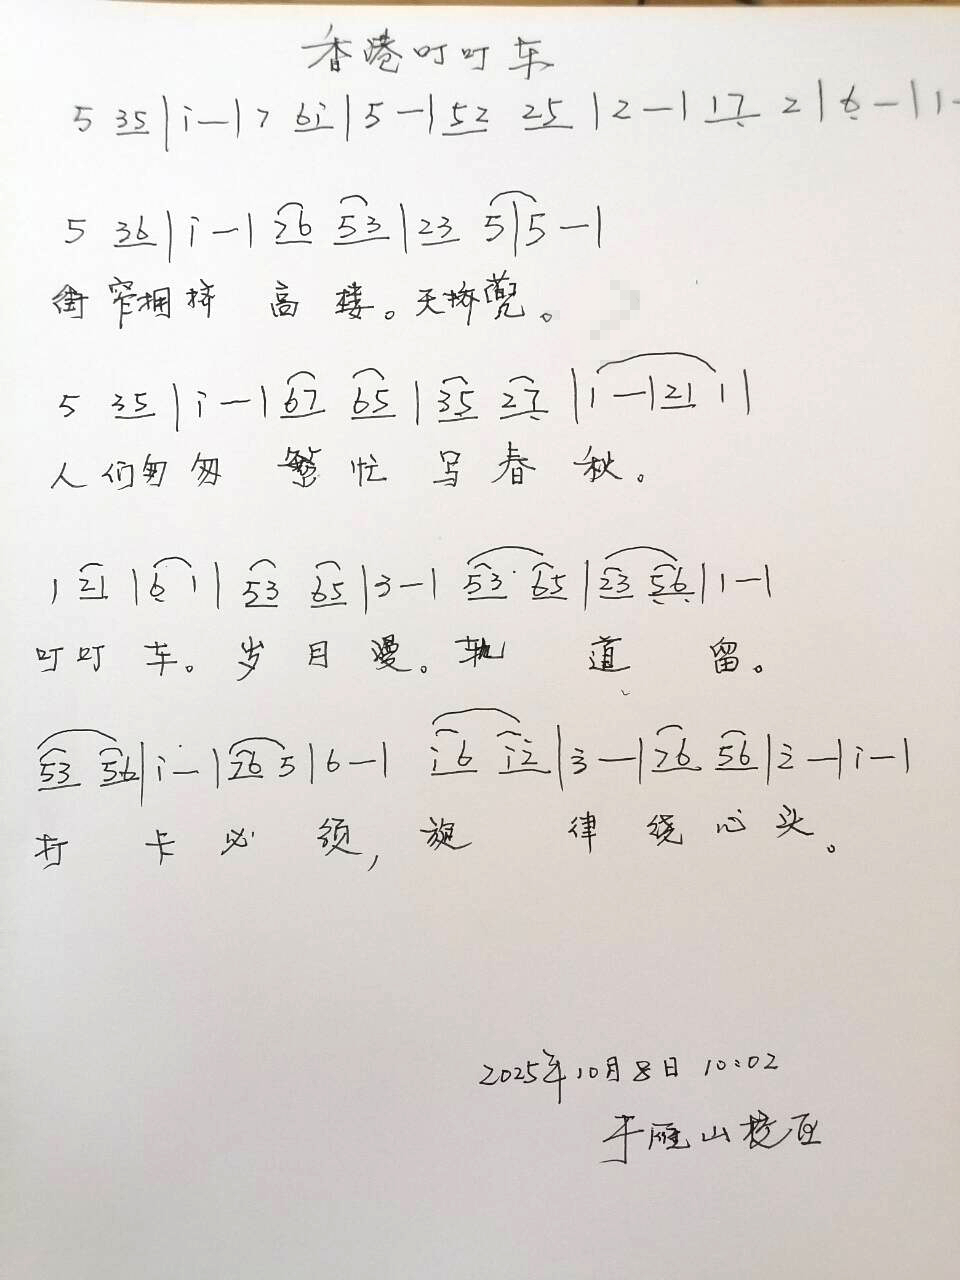 香港叮叮车
5 35 | i — | 7 6i | 5 — | 52 25 | 2 — | 17 2 | 6 — | 1 -
5 36 | i — | 76 53 | 23 5 | 5 — |
街窄拥挤 高楼。天桥兜。
5 35 | i — | 67 65 | 35 27 | 1 — | 21 1 |
人们匆匆 繁忙写春秋。
1 21 | 6 1 | 53 65 | 3 — | 53 65 | 23 56 | 1 — |
叮叮车。岁月漫。轨道留。
53 56 | i — | 76 5 | 6 — | i6 i2 | 3 — | 76 56 | 2 — | i — |
打卡必须,旋律绕心头。
2025年10月8日 10:02
于雁山校区